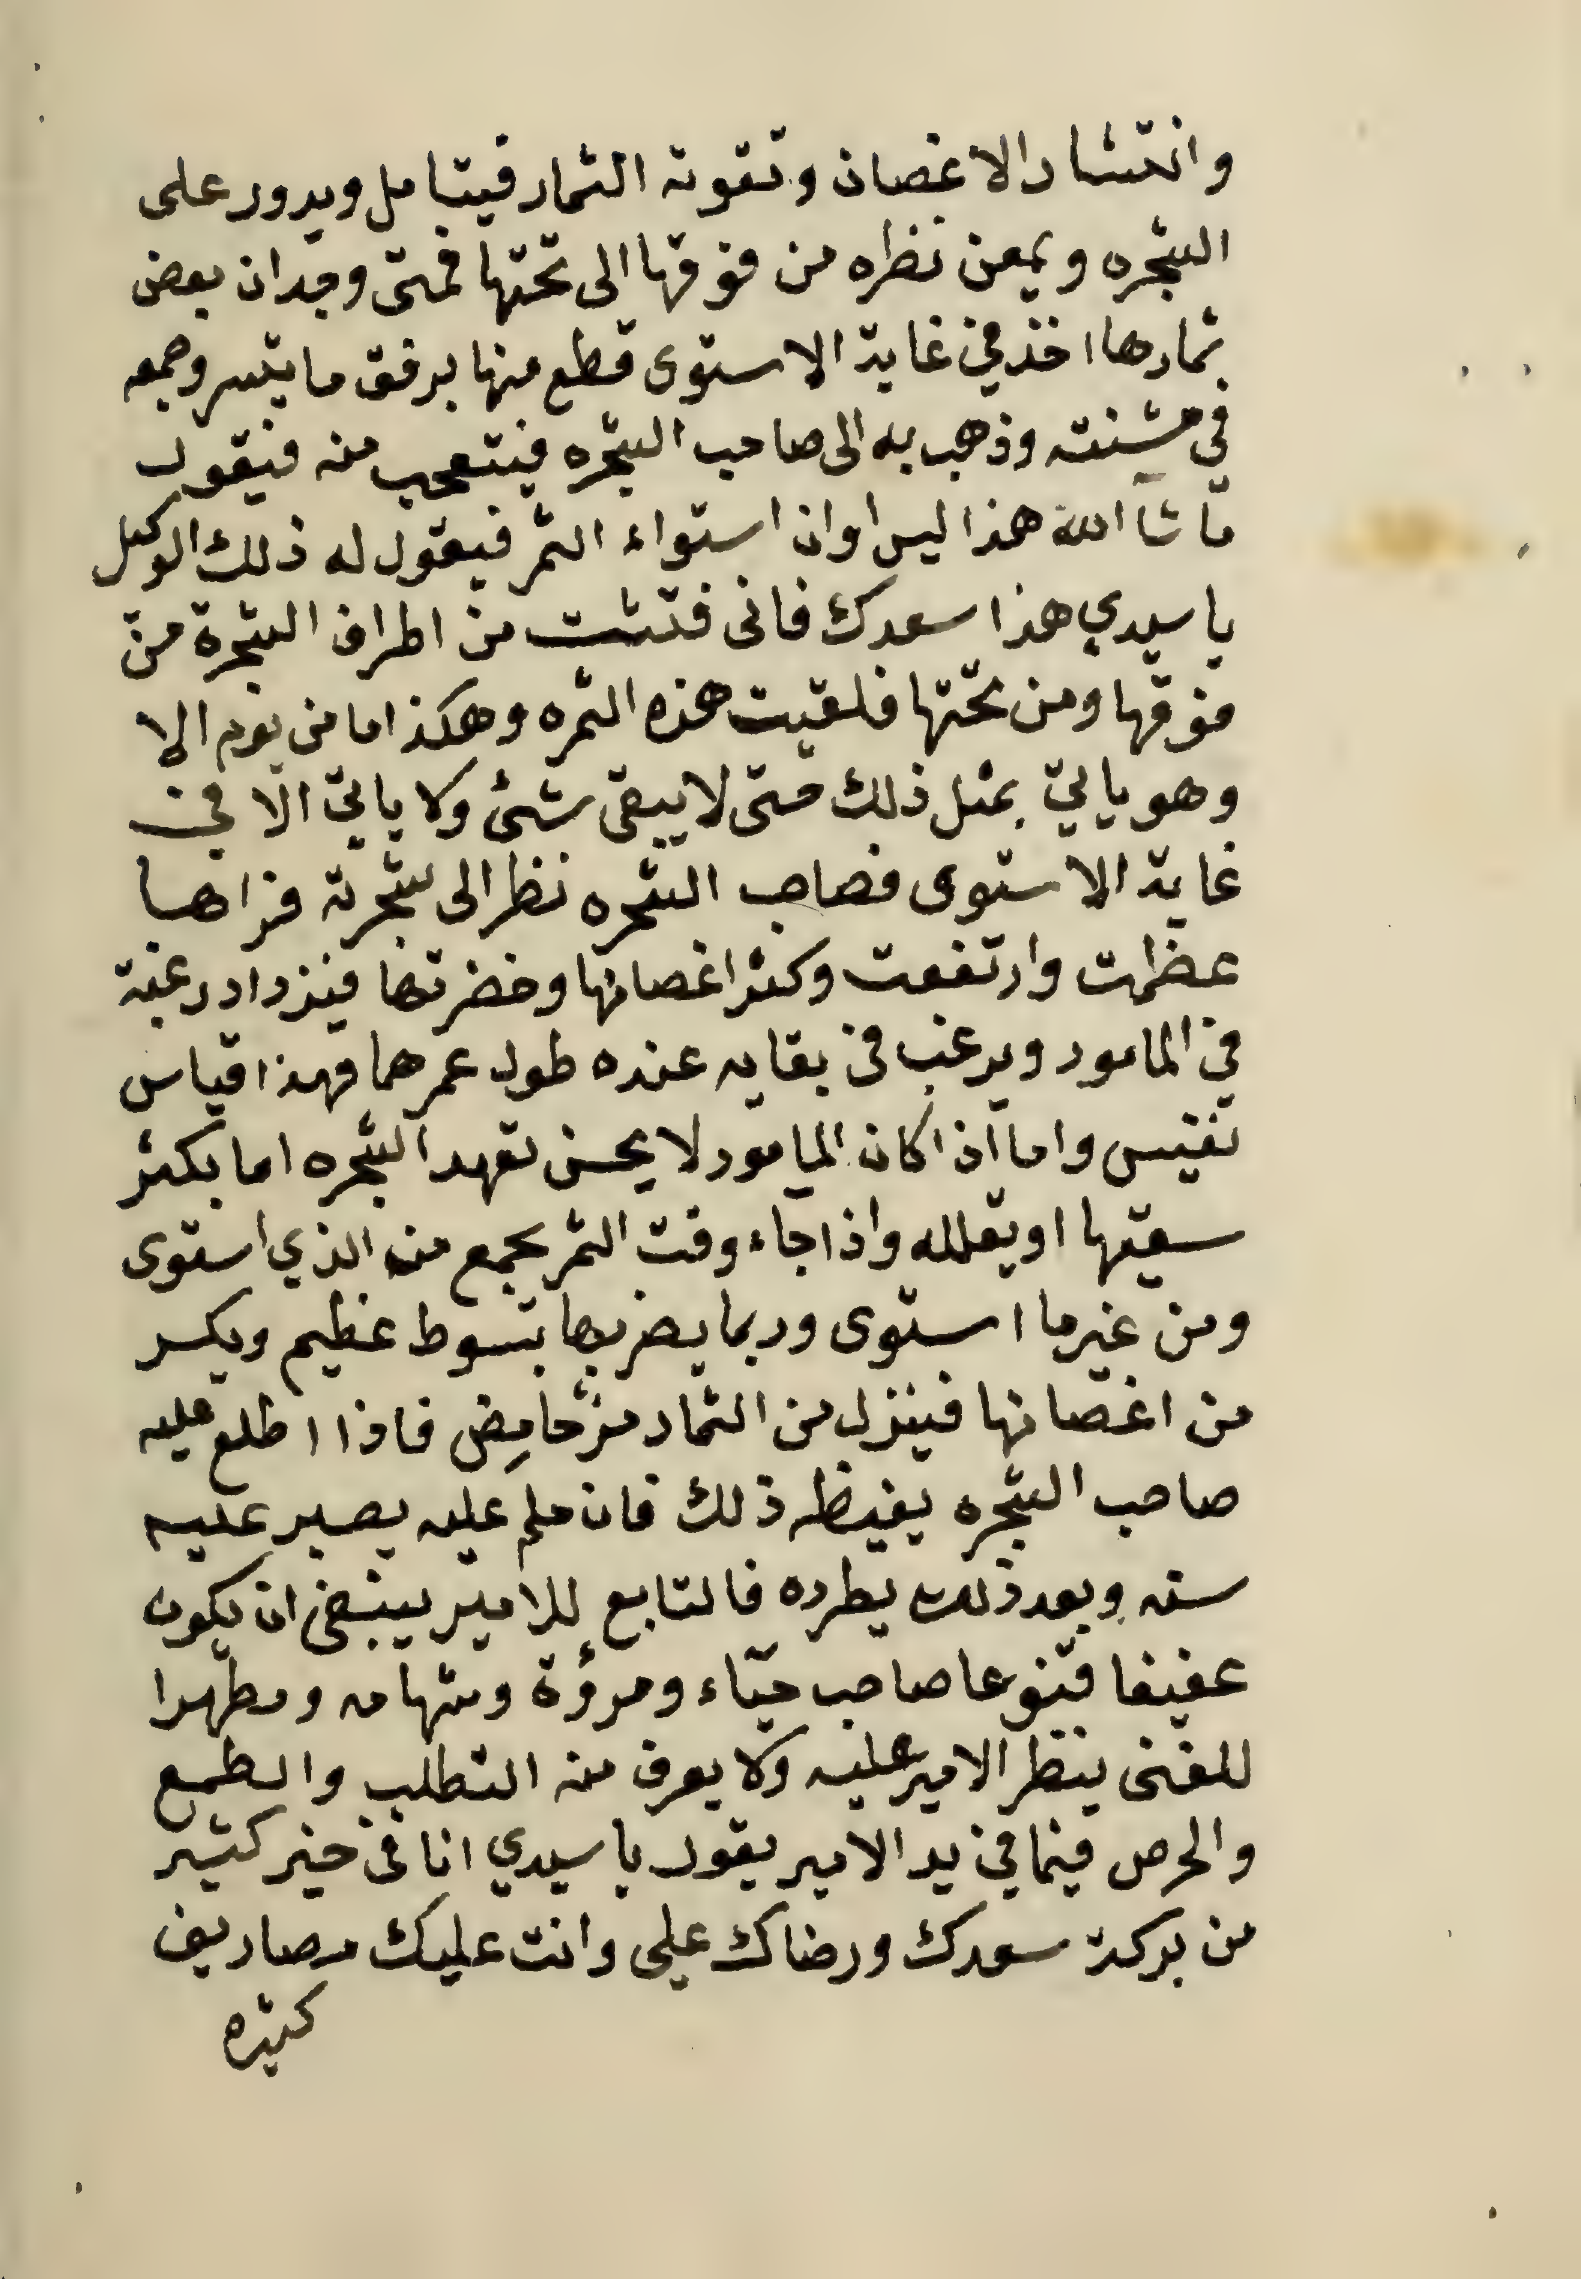 وانتشار الاغصان وتقوية الثمار فيتامل ويدور على
الشجره ويمعن نظراه من فوقها الى تحتها فمتى وجد ان بعض
ثمارها اخذ في غاية الاستوى قطع منها برفق ما يتسر وجمعه
في مشنته وذهب به الى صاحب الشجره فيتعجب منه فيقول
ما شآ الله هذا ليس اوان استواء الثمر فيقول له ذلك الوكيل
يا سيدي هذا سعدك فانى فتشت من اطراف الشجرة من
فوقها ومن تحتها فلقيت هذه الثمره وهكذا ما من يوم الا
وهو ياتي بمثل ذلك حتى لا يبقى شئ ولا ياتي الا في
غاية الاستوى فصاحب الشجره نظر الى شجرته فراها
عظمت وارتفعت وكثر اغصانها وخضرتها فيزداد رغبة
في المامور ويرغب في بقايه عنده طول عمرهما فهذا قياس
نفيس واما اذا كان المامور لا يحسن تعهد الشجره اما بكثر
سقيها او يقلله واذا جاء وقت الثمر يجمع من الذي استوى
ومن غير ما استوى وربما يضربها بسوط عظيم ويكسر
من اغصانها فينزل من الثمار مز حامض فاذا اطلع عليه
صاحب الشجره يغيظه ذلك فان حلم عليه يصبر عليه
سنه وبعد ذلك يطرده فالتابع للامير ينبغي ان يكون
عفيفا قنوعا صاحب حياء ومروة وشهامه ومظهرا
للغنى ينظر الامير عليه ولا يعرف منه التطلب والطمع
والحرص فيما في يد الامير يقول يا سيدي انا في خير كثير
من بركة سعدك ورضاك علي وانت عليك مصاريف
كثيره